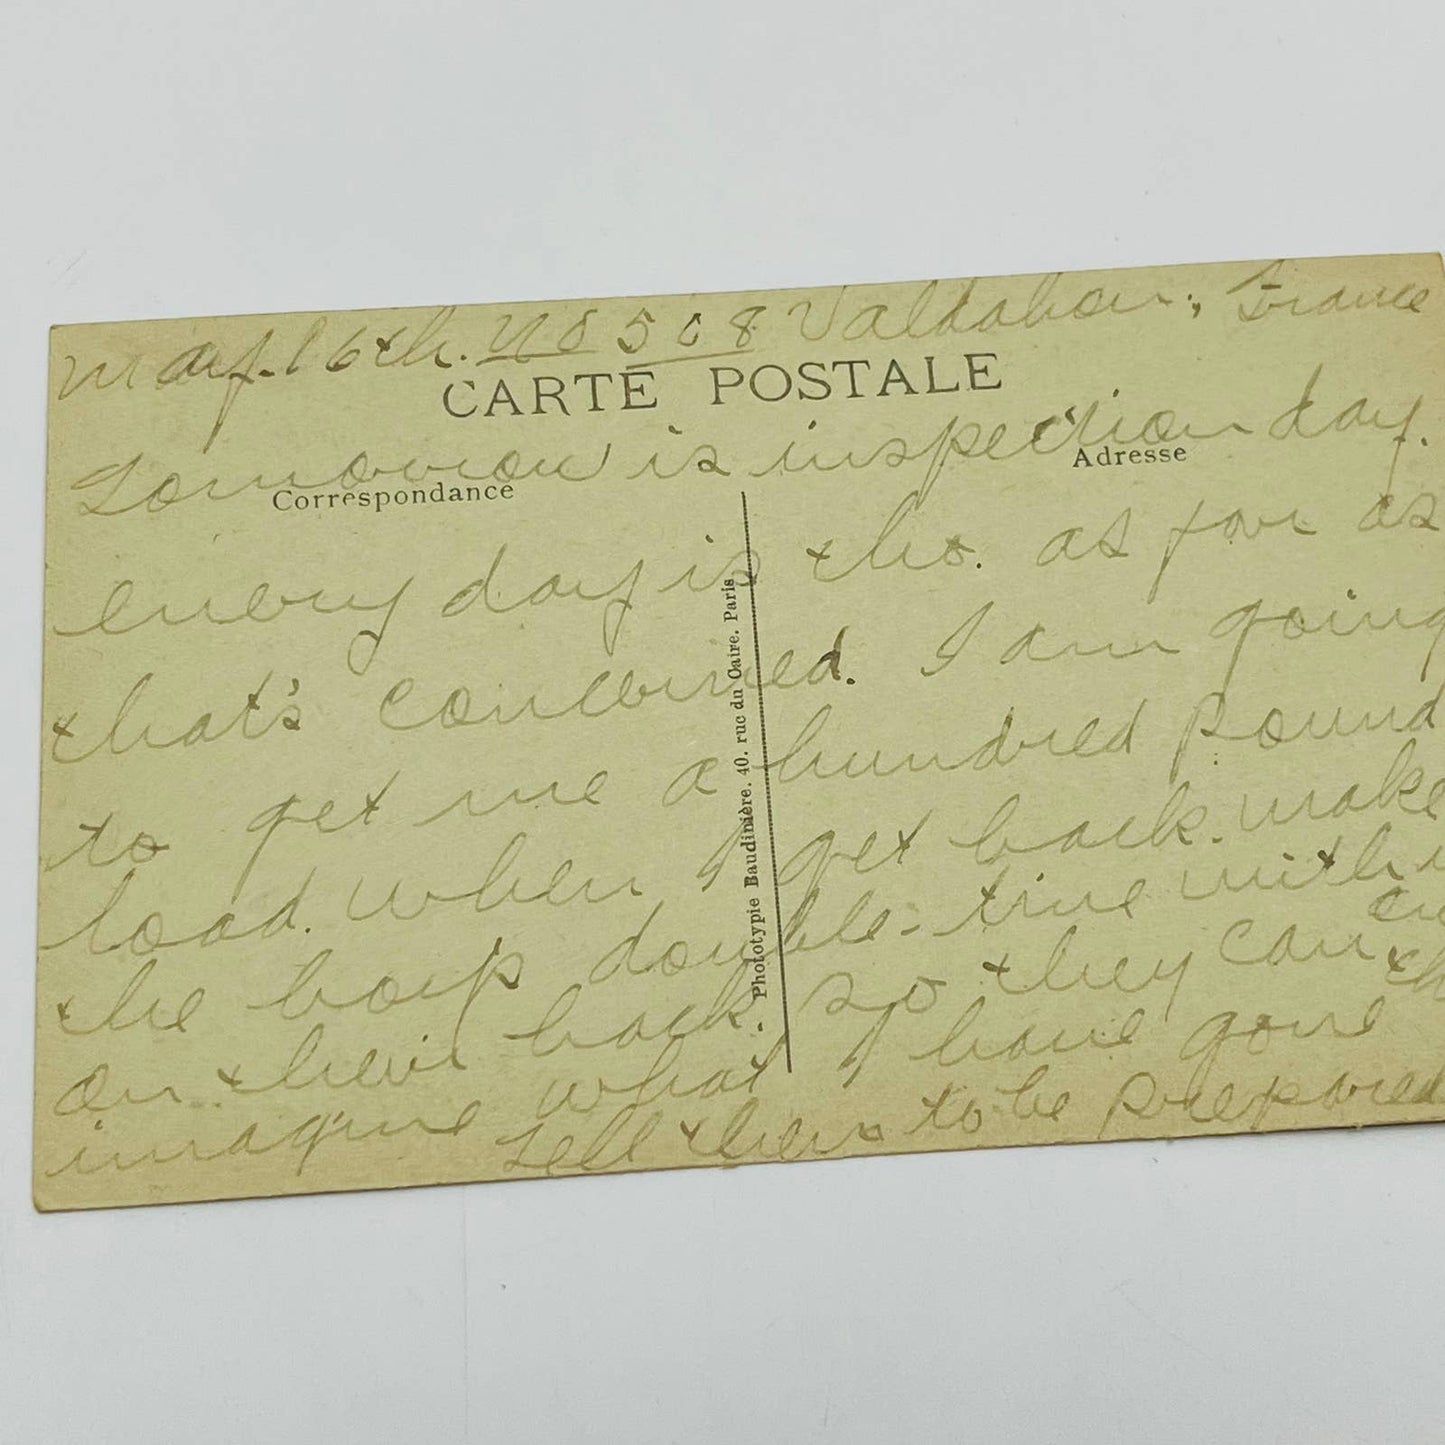 May. 16th. No 508 Valdahon, France
CARTE POSTALE
Tomorrow is inspection day.
Correspondance
Adresse
every day is tho. as far as
that's concerned. I am going
to get me a hundred pound
load. when I get back. make
the boys double-time with
on their back. so they can
imagine what I have gone
Tell them to be prepared
Phototypie Baudinière. 40. rue du Caire. Paris